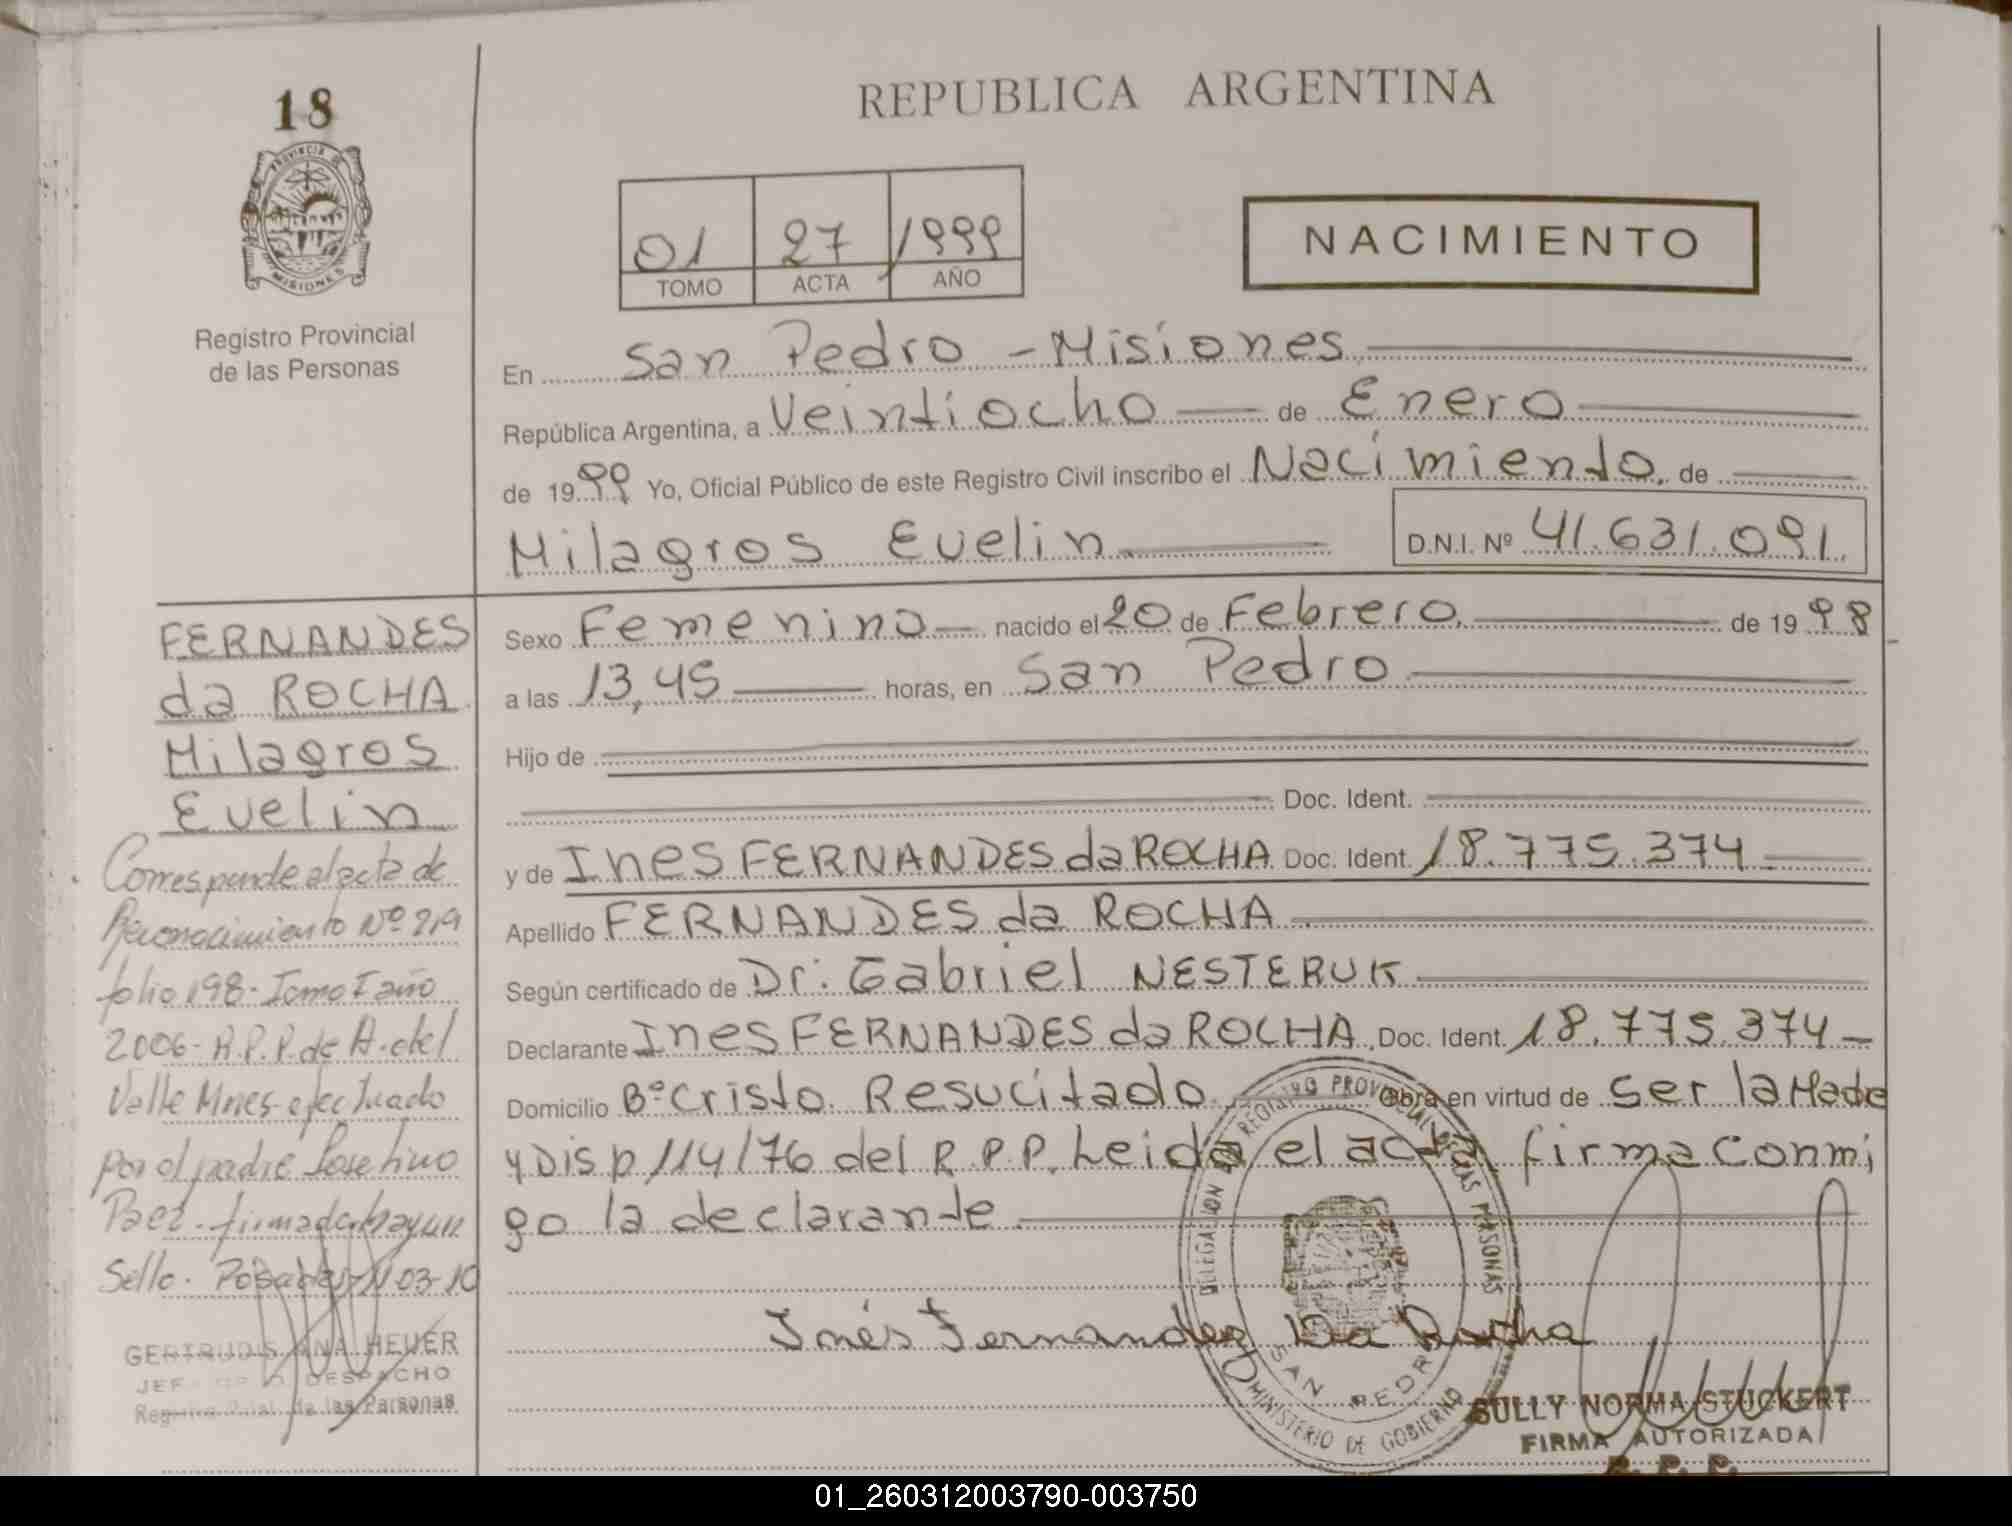 18
PROVINCIA DE
MISIONES
Registro Provincial
de las Personas
REPUBLICA ARGENTINA
01 27 1999
TOMO ACTA AÑO
NACIMIENTO
En San Pedro - Misiones
República Argentina, a Veintiocho de Enero
de 1999 Yo, Oficial Público de este Registro Civil inscribo el Nacimiento, de
Milagros Evelin D.N.I. Nº 41.631.091
Sexo Femenino nacido el 20 de Febrero de 1998
a las 13,45 horas, en San Pedro
Hijo de
Doc. Ident.
y de Ines FERNANDES da ROCHA Doc. Ident. 18.775.374
Apellido FERNANDES da ROCHA
Según certificado de Dr: Gabriel NESTERUK
Declarante Ines FERNANDES da ROCHA Doc. Ident. 18.775.374
Domicilio Bº Cristo Resucitado Obra en virtud de ser la Madre
y Disp 114/76 del R.P.P. Leida el acta, firma conmi
go la declarante
Inés Fernandes Da Rocha
DELEGACION REGISTRO PROVINCIAL DE LAS PERSONAS
SAN PEDRO
MINISTERIO DE GOBIERNO
SULLY NORMA STUCKERT
FIRMA AUTORIZADA
R. P. P.
FERNANDES
da ROCHA
Milagros
Evelin
Corresponde al acta de
Reconocimiento Nº
folio 198- Tomo I año
2006- R.P.P. de A. del
Valle Mnes- efectuado
por el padre
Paez - firmado hay un
Sello. Posadas 03-10
GERTRUDIS ANA HEUER
DESPACHO
de las Personas
01_260312003790-003750